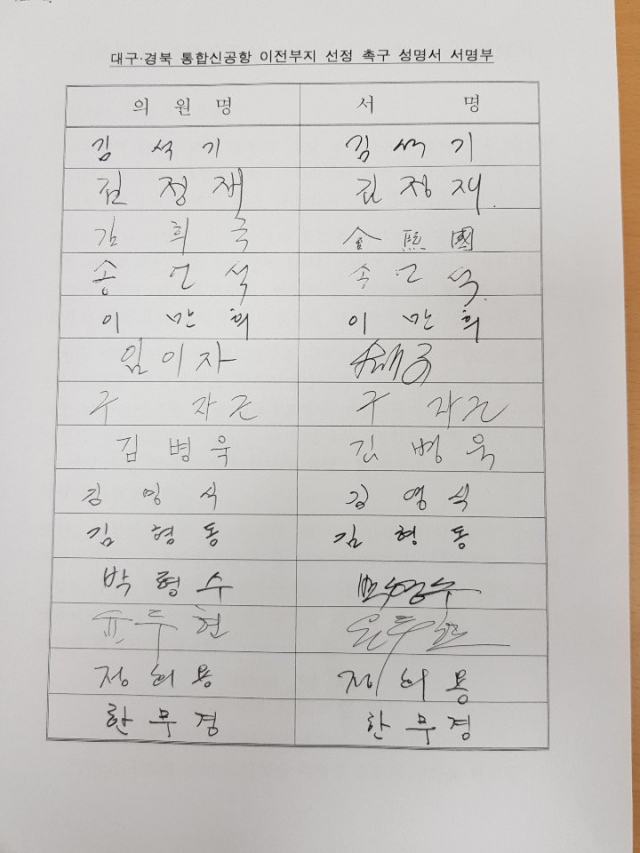 대구·경북 통합신공항 이전부지 선정 촉구 성명서 서명부
의 원 명 서 명
김 석 기 김 석 기
김 정 재 김 정 재
김 희 국 金 熙 國
송 언 석 송 언 석
이 만 희 이 만 희
임 이 자
구 자 근 구 자 근
김 병 욱 김 병 욱
김 영 식 김 영 식
김 형 동 김 형 동
박 형 수 박형수
윤 두 현 윤 두 현
정 희 용 정 희 용
한 무 경 한 무 경